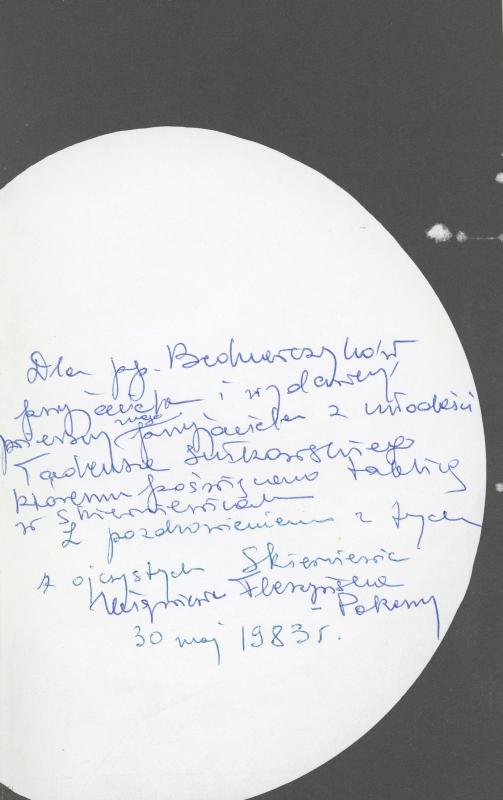 Dla pp. Bednarczyków
przyjaciela i wydawcy
poezji mego przyjaciela z młodości
Tadeusza Sułkowskiego
któremu poświęcono tablicę
w Skierniewicach
Z pozdrowieniem z tych
z ojczystych Skierniewic
– Pokorny
30 maj 1983 r.